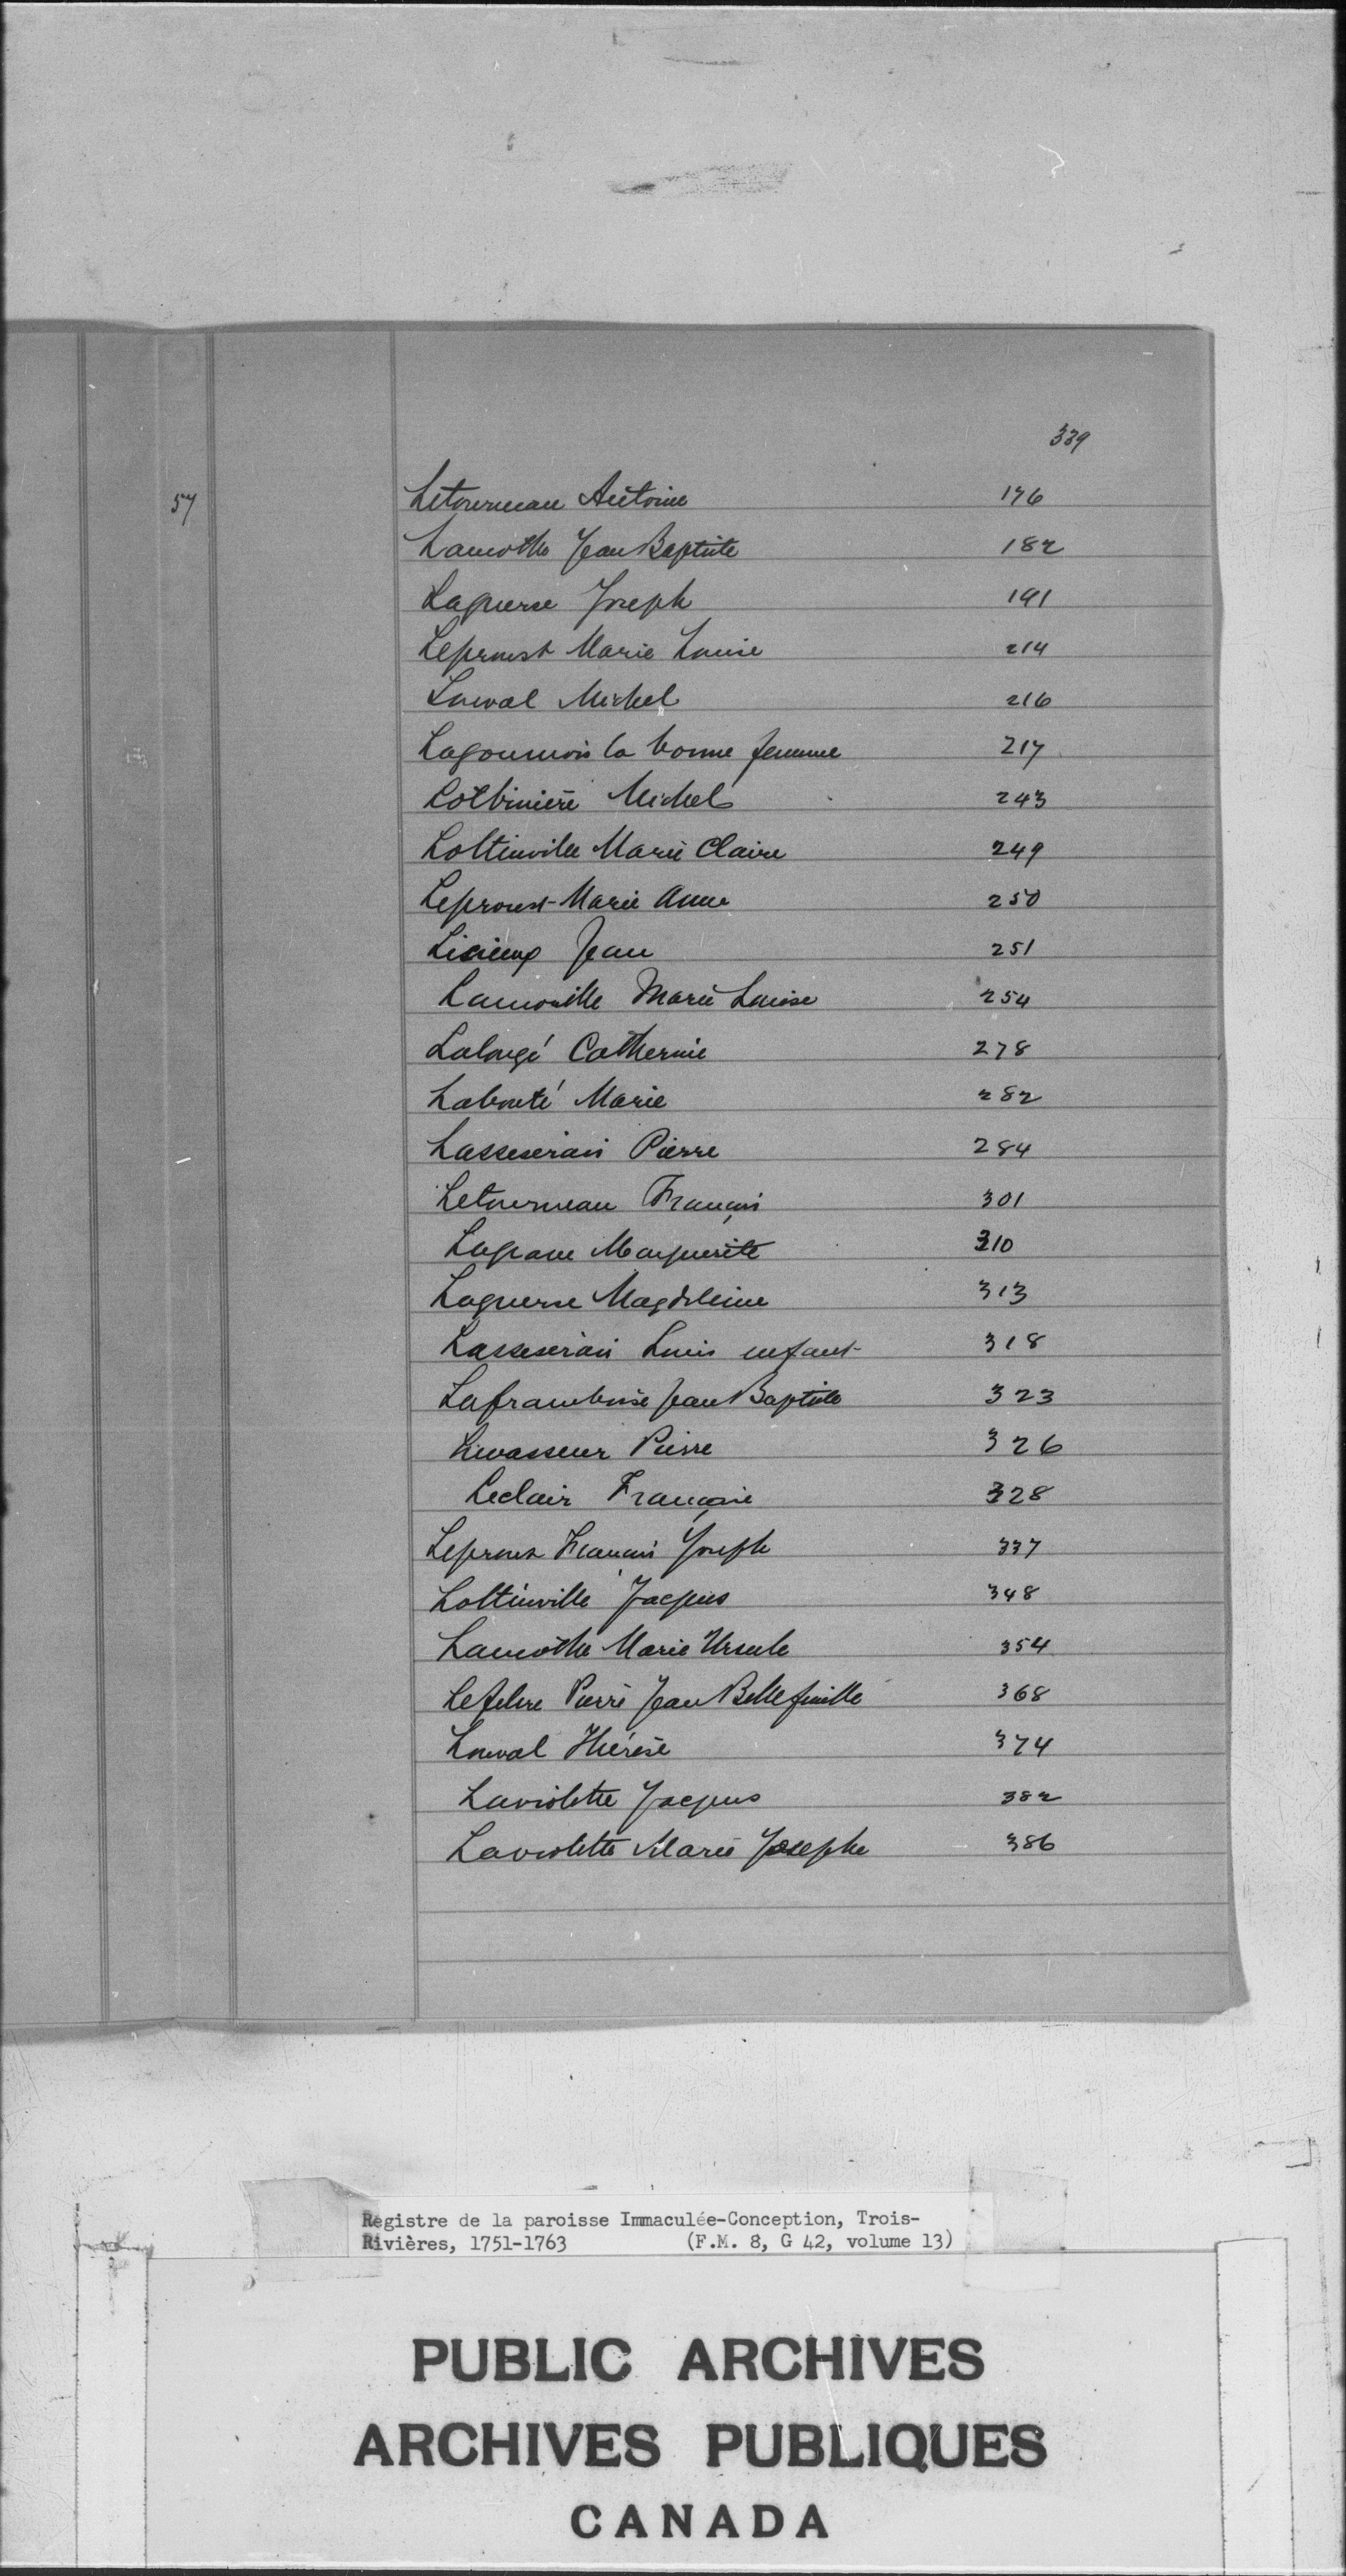 339
57
Letourneau Antoine 176
Lamothe Jean Baptiste 182
Laguerse Joseph 191
Leproust Marie Louise 214
Lorval Michel 216
la bonne femme 217
Lotbinière Michel 243
Lottinville Marie Claire 249
Leproust Marie Anne 250
Lisieux Jean 251
Marie Louise 254
Lalongé Catherine 278
Labonté Marie 282
Lasseserais Pierre 284
Letourneau François 301
Lagrave Marguerite 310
Laguerse Magdeleine 313
Lasseserais Louis enfant 318
Laframboise Jean Baptiste 323
Levasseur Pierre 326
Leclair Françoise 328
Leproust François Joseph 337
Lottinville Jacques 348
Lamothe Marie Ursule 354
Lefebvre Pierre Jean Bellefeuille 368
Lorval Thérèse 374
Laviolette Jacques 382
Laviolette Marie Josephe 386
Registre de la paroisse Immaculée-Conception, Trois-
Rivières, 1751-1763 (F.M. 8, G 42, volume 13)
PUBLIC ARCHIVES
ARCHIVES PUBLIQUES
CANADA